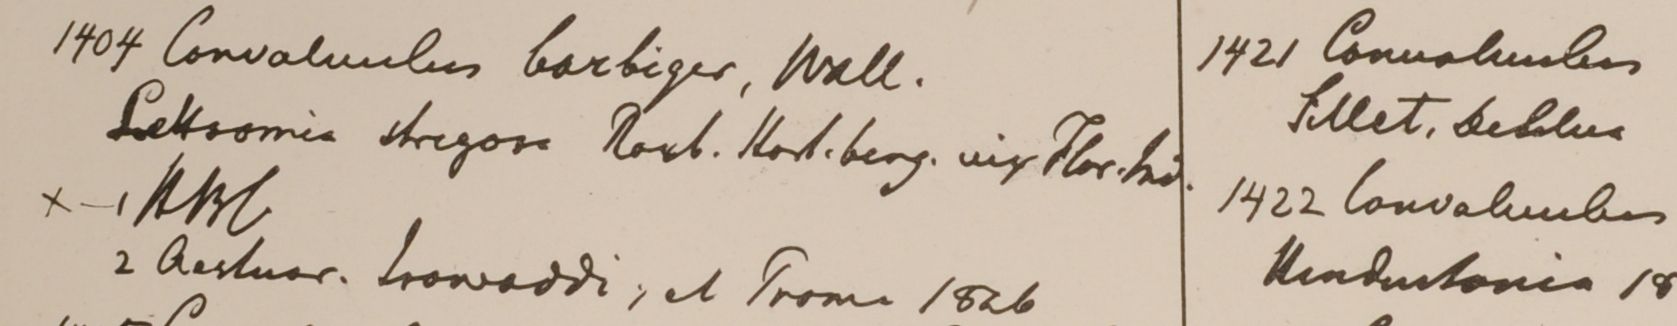 1404 Convolvulus barbiger, Wall.
Lettsomia strigosa Roxb. Hort. beng. vix Flor. Ind.
x – 1 HBC
2 Aestuar. Irawaddi, et Prome 1826
1421 Convolvulus
Sillet,
1422 Convolvulus
Hindustania 18